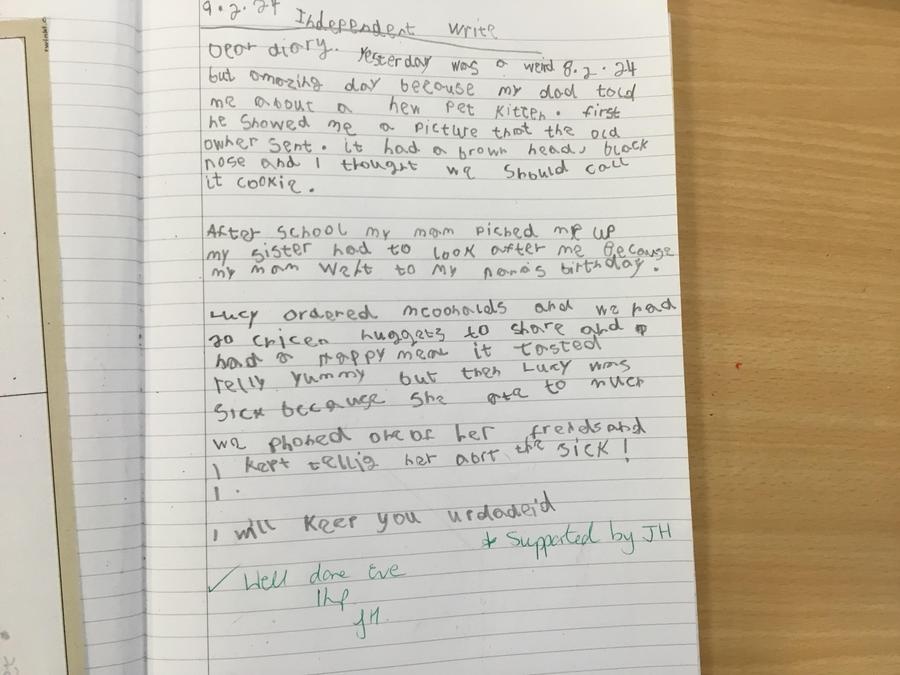 9.2.24 Independent write
Dear diary. Yesterday was a weird 8.2.24
but amazing day because my dad told
me about a new pet kitten. first
he showed me a picture that the old
owner sent. it had a brown head, black
nose and I thought we should call
it cookie.
After school my mam picked me up
my sister had to look after me Because
my mam went to my nana's birthday.
Lucy ordered mcdonalds and we had
20 cricen nuggets to share and
had a Happy meal it tasted
relly yummy but then Lucy was
sick because she ate to much
we phoned one of her freids and
I kept tellig her abrt the sick!
I.
I will keep you urdadei'd
* Supported by JH
✓ Well done Eve
1hp
JH
twinkl.c